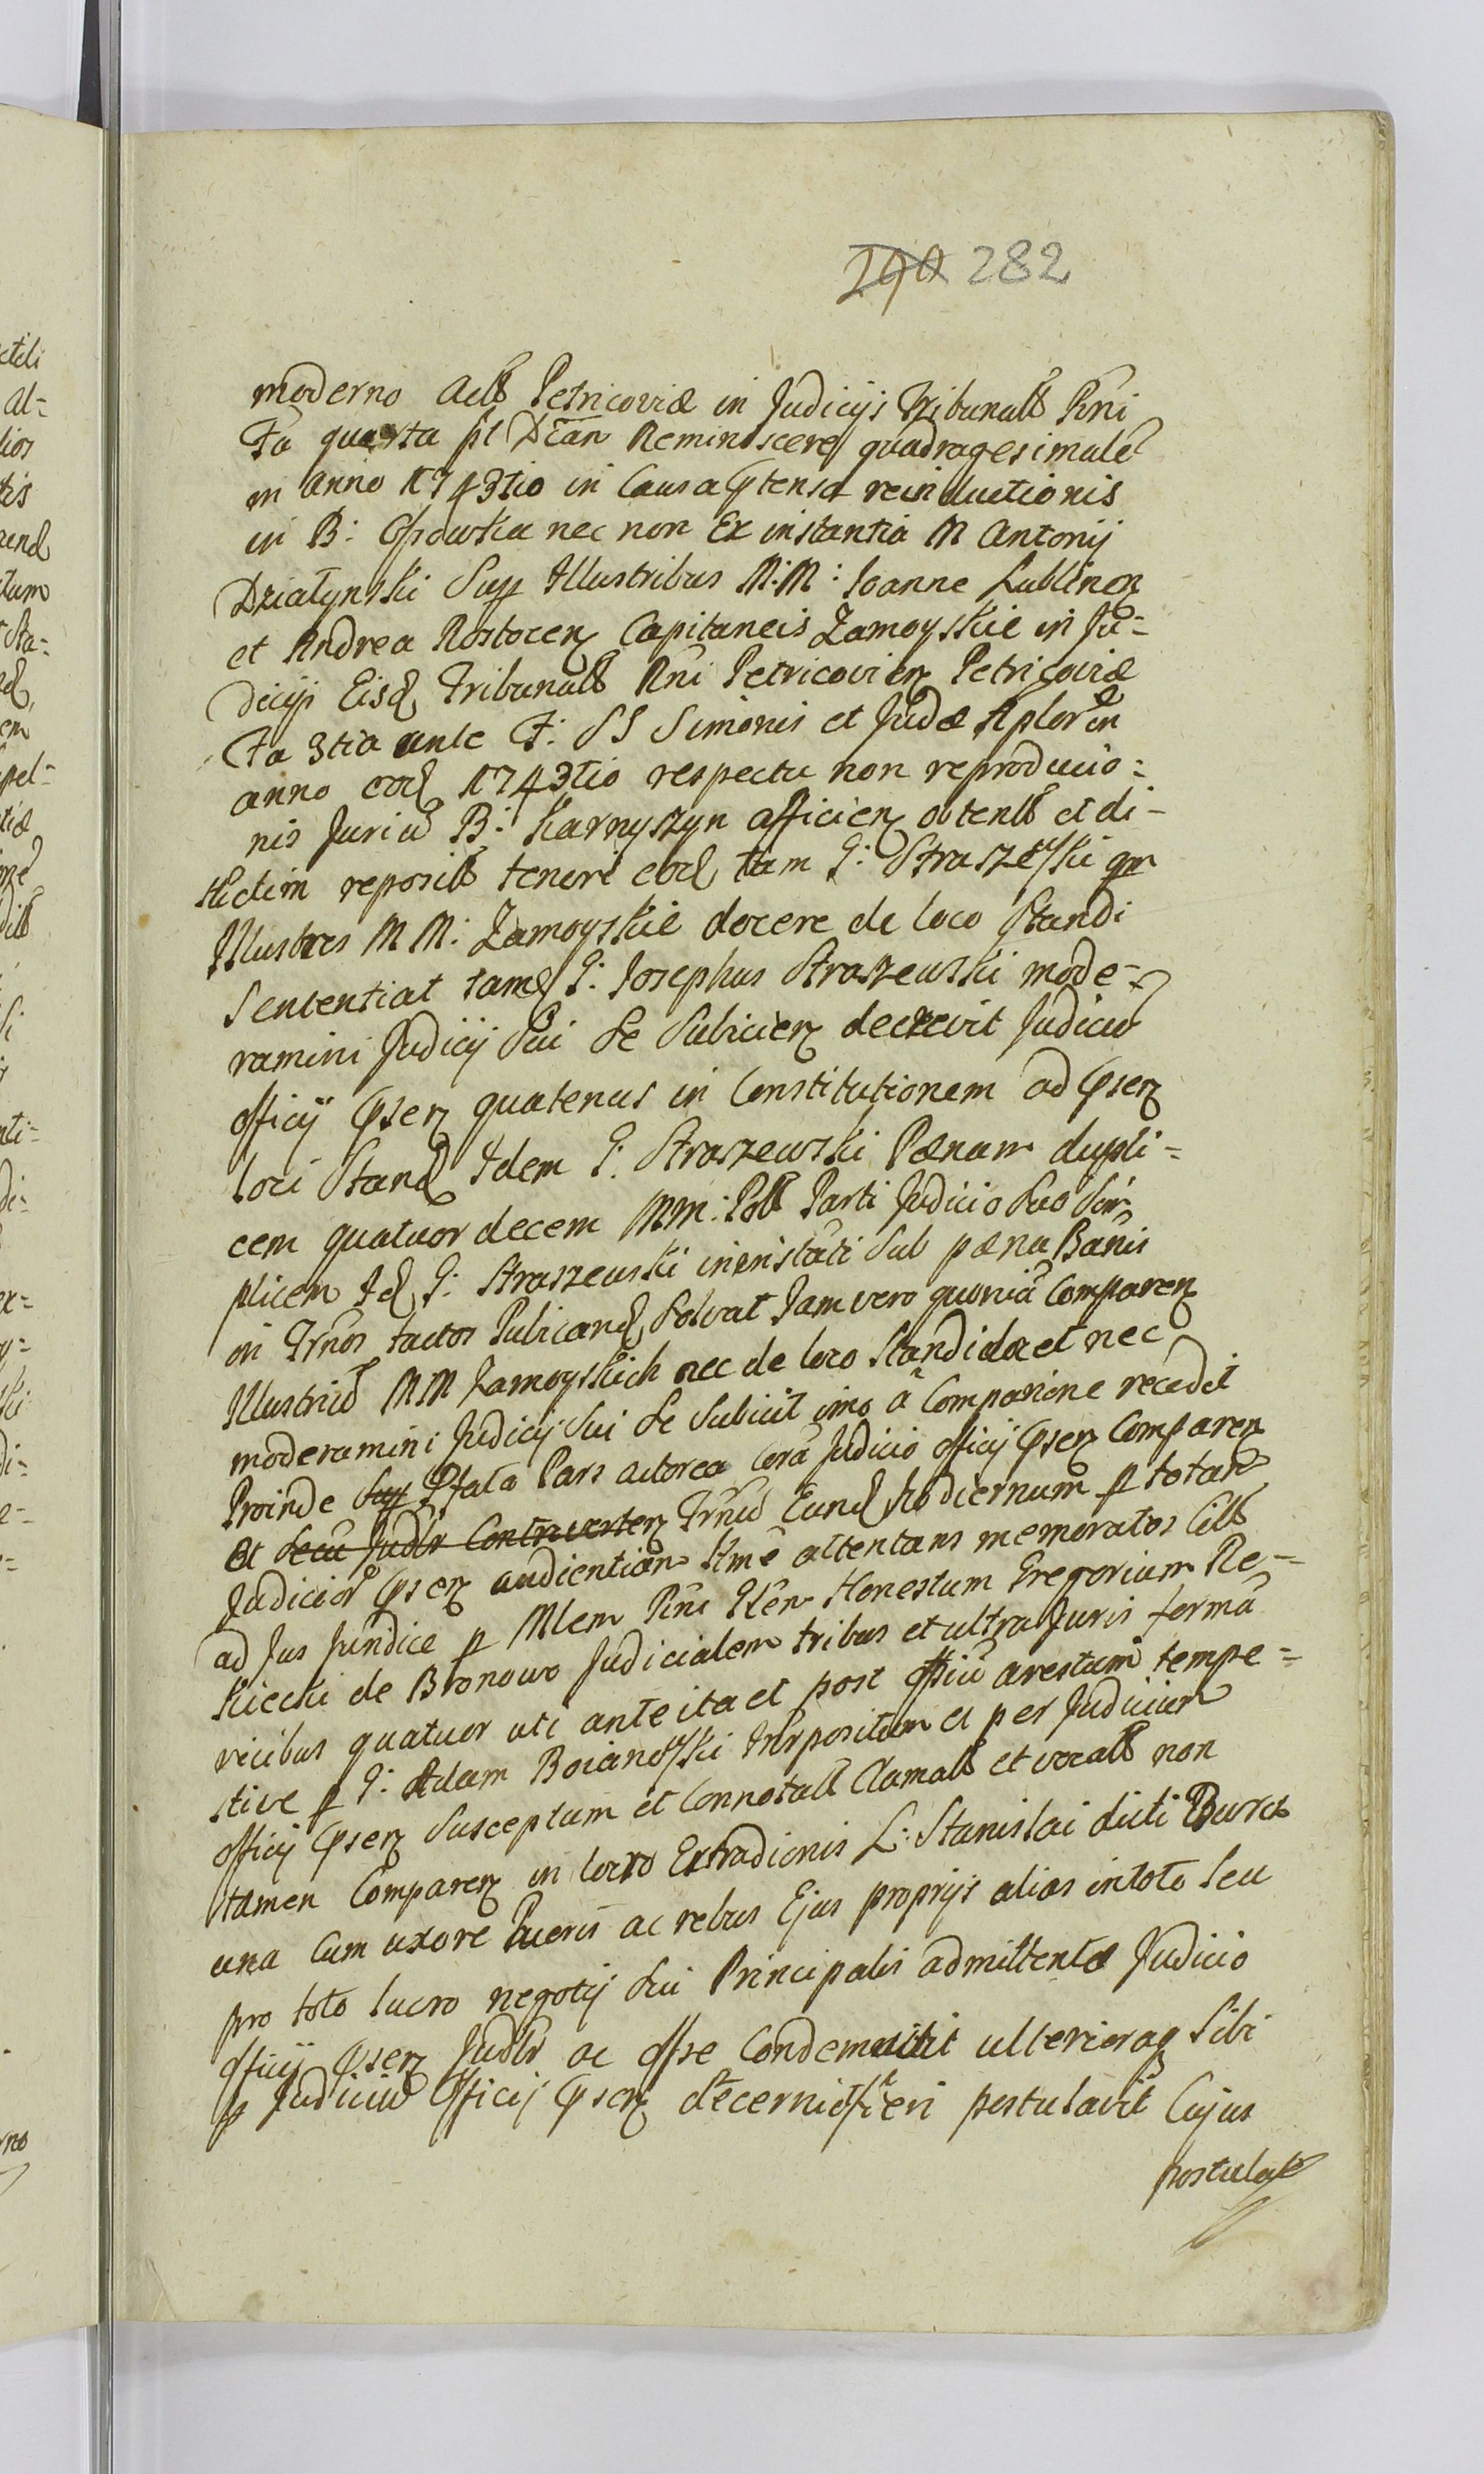 290 282
moderno Actt Petricoviæ in Judicijs Tribunall Rñi
Fa quarta pt Dcan Reminiscere quadragesimale
in anno 1743tio in Causa ptensæ reinductionis
in B: Opowka nec non Ex instantia M Antonij
Działynski Sup Illustribus M:M: Joanne Lublinen
et Andrea Rostocen Capitaneis Zamoyskie in Ju=
dicijs Eisd Tribunall Rñi Petricovien Petricoviæ
Fa 3tia ante F: SS Simonis et Judæ Aplor in
anno eod 1743tio respectu non reproducio=
nis Juriu B: Karnyszyn afficien obtentt et di-
strictim repositt teneri eod tam G: Straszewski qm
Illustres M M: Zamoyskie docere de loco Standi
Sententiat tamq G: Josephus Straszewski mode=
ramini Judicij Sui Se Subicien decrevit Judiciu
officij Psen quatenus in Constitutionem ad Psen
loci Stand Idem G: Straszewski Pænam dupli=
cem quatuor decem MM: Poll Parti Judicio Suo Sim
plicem Id G: Straszewski ininstati Sub pæna Banis
in Trños factos Publicand Solvat Jam vero quonia Comparen
Illustriu MM Zamoyskich nec de loco Standi docet nec
moderamini Judicij Sui Se Subicit imo a Comparione recedit
Proinde Sup Pfata Pars actorea Cora Judicio officij Psen Comparen
et Secu Judlr Controverten Trñu Eund hodiernum p totam
Judicior Psen audientiam Ltme attentans memoratos Citt
ad Jus Juridice p Mlem Rñi Glen Honestum Gregorium Re=
kiecki de Bronowo Judicialem tribus et ultra Juris forma
vicibus quatuor uti ante ita et post offiu arestum tempe=
stive p G: Adam Boianowski Interpositum et per Judicium
officij Psen Susceptum et Connotatt Clamatt et vocatt non
tamen Comparen in lucro Extradionis L: Stanislai dicti Burcz
una Cum uxore Pueris ac rebus Ejus proprijs alias in toto Seu
pro toto lucro negotij Sui Principalis admittentæ Judicio
officij Psen Judlr ac offse Condemnavit ulterioraq Sibi
p Judiciu Officij Psen decerni fieri postulavit Cujus
postulate